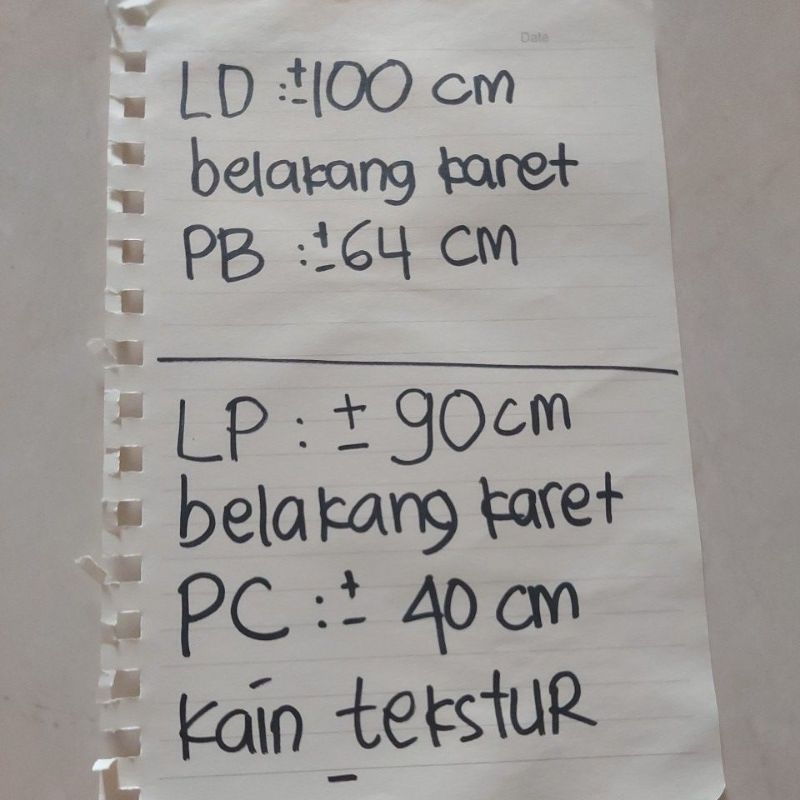 Date
LD :±100 cm
belakang karet
PB :±64 cm
LP : ± 90 cm
belakang karet
PC :± 40 cm
kain tekstur